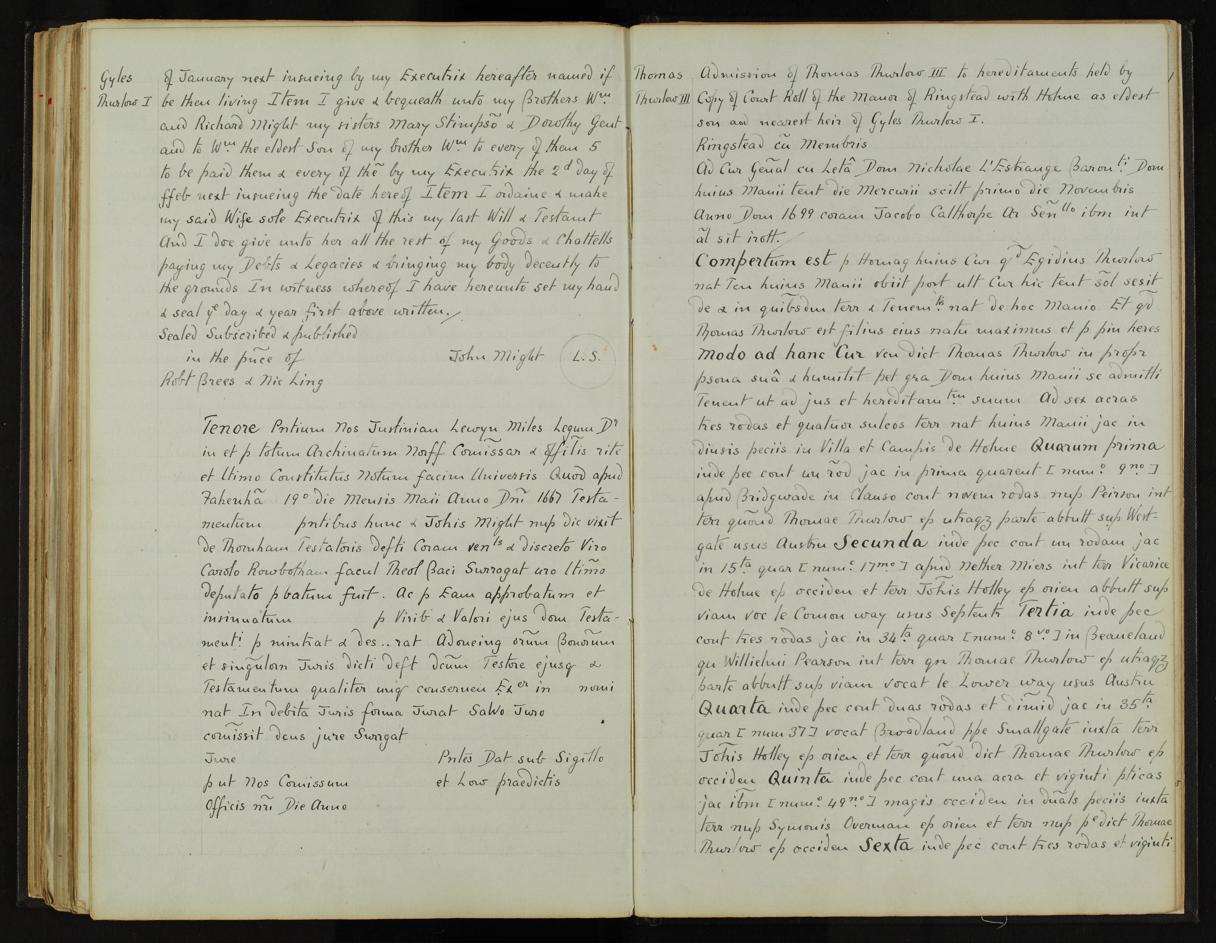 Gyles
Thurlow I
of January next insueing by my Executrix hereafter named if
be then living Item I give & bequeath unto my Brothers Wm
and Richard Might my sisters Mary Stimpsõ & Dorothy Gent
and to Wm the eldest Son of my brother Wm to every of them 5
to be paid them & every of thẽ by my Executrix the 2d day of
ffeb next insueing the date hereof Item I ordaine & make
my said Wife sole Executrix of this my last Will & Testamt
And I doe give unto her all the rest of my Goods & Chattells
paying my Debts & Legacies & bringing my body decently to
the grounds In witness whereof I have hereunto set my hand
& seal ye day & year first above written.
Sealed Subscribed & published
in the pñce of John Might L.S.
Robt Brees & Nic Ling
Tenore Pntium Nos Justinian Lewyn Miles Legum Dr
in et p totum Archinatum Norff Com̃issar & offĩlis rite
et ltimo Constitutus Notum facim Universis Quod apud
Fakenhã 19o die Mensis Maii Anno Dñi 1667 Testa-
mentum pntibus hunc & Johis Might nup dic vixit
de Thornham Testatoris defti Coram vents & discreto Viro
Carolo Rowbotham facul Theol Baci Surrogat uro ltim̃o
deputato pbatum fuit. Ac p Eam approbatum et
insinuatum p Virib & Valori ejus dom Testa-
menti p mintrat & des..rat Adoneing orũm Bonorũm
et singulorn Juris dicti deft dcũm Testore ejusq &
Testamentum qualiter unq conserneu Exer in nomi
nat In debita Juris forma Jurat Salvo Juro
com̃issit dcus jure Surrgat
Jure Pntes Dat sub Sigillo
put Nos Comissum et Loco praedictis
Officis nr̃i Die Anno
Thomas
Thurlow III
Admission of Thomas Thurlow III to hereditaments held by
Copy of Court Roll of the Manor of Ringstead with Holme as eldest
son and nearest heir of Gyles Thurlow I.
Ringstead cũ Membris
Ad Cur Geñal cu Letâ Dom Nicholae L'Estrange Baronti Dom
huius Manii tent die Mercurii scilt primo die Novembris
Anno Dom 1699 coram Jacobo Calthorpe Ar Señllo ibm int
ãl sit irott.
Compertum est p Homag huius Cur qd Egidius Thurlow
nat Ten huius Manii obiit post ult Cur hic tent sõl sesit
de & in quibsdm terr & Tenemtis nat de hoc Manio Et qd
Thomas Thurlow est filius eius natu maximus et p pin heres
Modo ad hanc Cur ven dict Thomas Thurlow in propr
psona suâ & humilit pet gra Dom huius Manii se admitti
Tenent ut ad jus et hereditamtm suum Ad sex acras
tres rodas et quatuor sulcos terr nat huius Manii jac in
diusis peciis in Villa et Campis de Holme Quarum prima
inde pec cont un rõd jac in prima quarent [numo 9no]
apud Bridgwade in Clauso cont novem rodas nup Peirson int
terr quõnd Thomae Thurlow ep utraqz parte abbutt sup West-
gate usus Austru Secunda inde pec cont un rodam jac
in 15ta quar [numo 17mo] apud Nether Miers int terr Vicarice
de Holme ep occiden et terr Johis Holley ep orien abbutt sup
viam voc le Comon way usus Septentr Tertia inde pec
cont tres rodas jac in 34ta quar [numo 8vo] in Beaneland
qu Willielmi Pearson int terr qn Thomae Thurlow ep utraqz
parte abbutt sup viam vocat le Lower way usus Austru
Quarta inde pec cont duas rodas et dimid jac in 35ta
quar [num 37] vocat Broadland ppe Smallgate iuxta terr
Johis Holley ep orien et terr quõnd dict Thomae Thurlow ep
occiden Quinta inde pec cont una acra et viginti pticas
jac ibm [numo 49no] magis occiden in duãls peciis iuxta
terr nup Symonis Overman ep orien et terr nup pedict Thomae
Thurlow ep occiden Sexta inde pec cont tres rodas et viginti